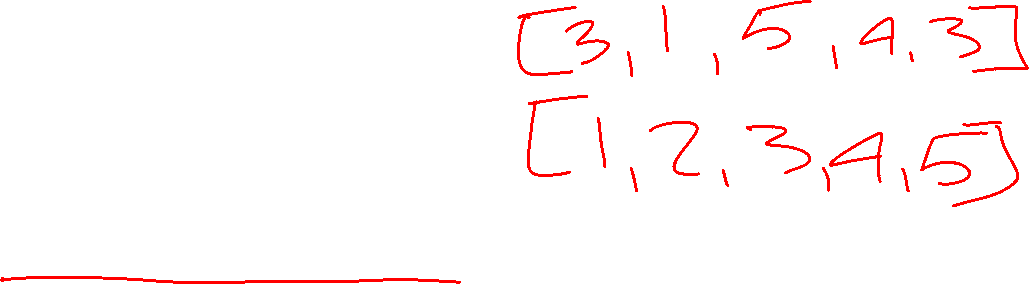 [3,1,5,4,3]
[1,2,3,4,5]